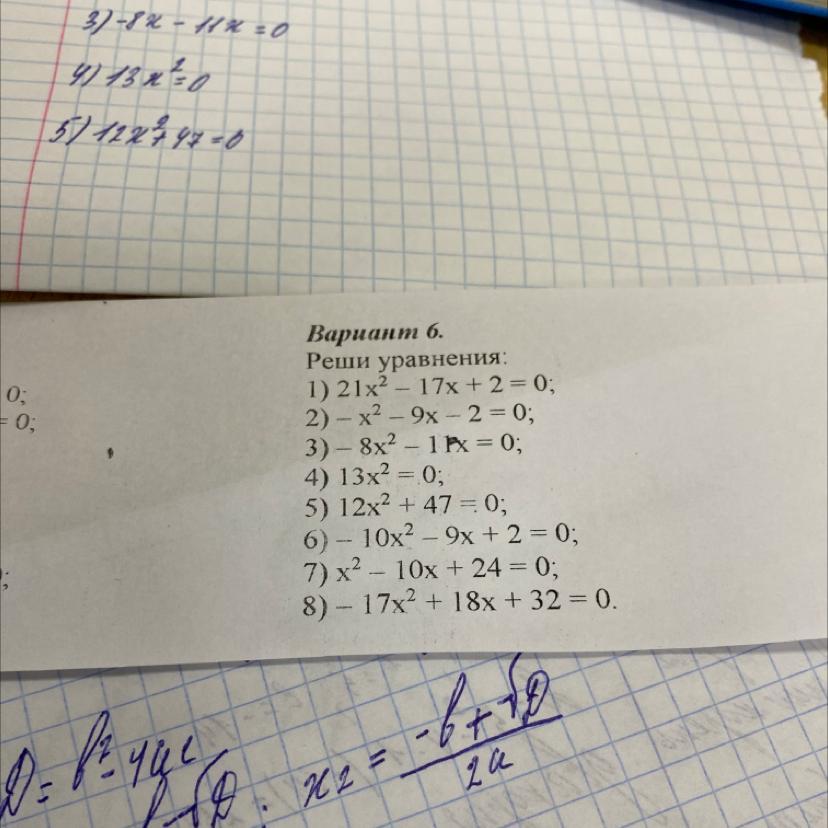 3) -8x - 11x = 0
4) 13x² = 0
5) 12x² + 47 = 0
0;
= 0;
Вариант 6.
Реши уравнения:
1) 21x² – 17x + 2 = 0;
2) – x² – 9x – 2 = 0;
3) – 8x² – 11x = 0;
4) 13x² = 0;
5) 12x² + 47 = 0;
6) – 10x² – 9x + 2 = 0;
7) x² – 10x + 24 = 0;
8) – 17x² + 18x + 32 = 0.
);
D = b² - 4ac
b - √D ; x2 = -b + √D / 2a